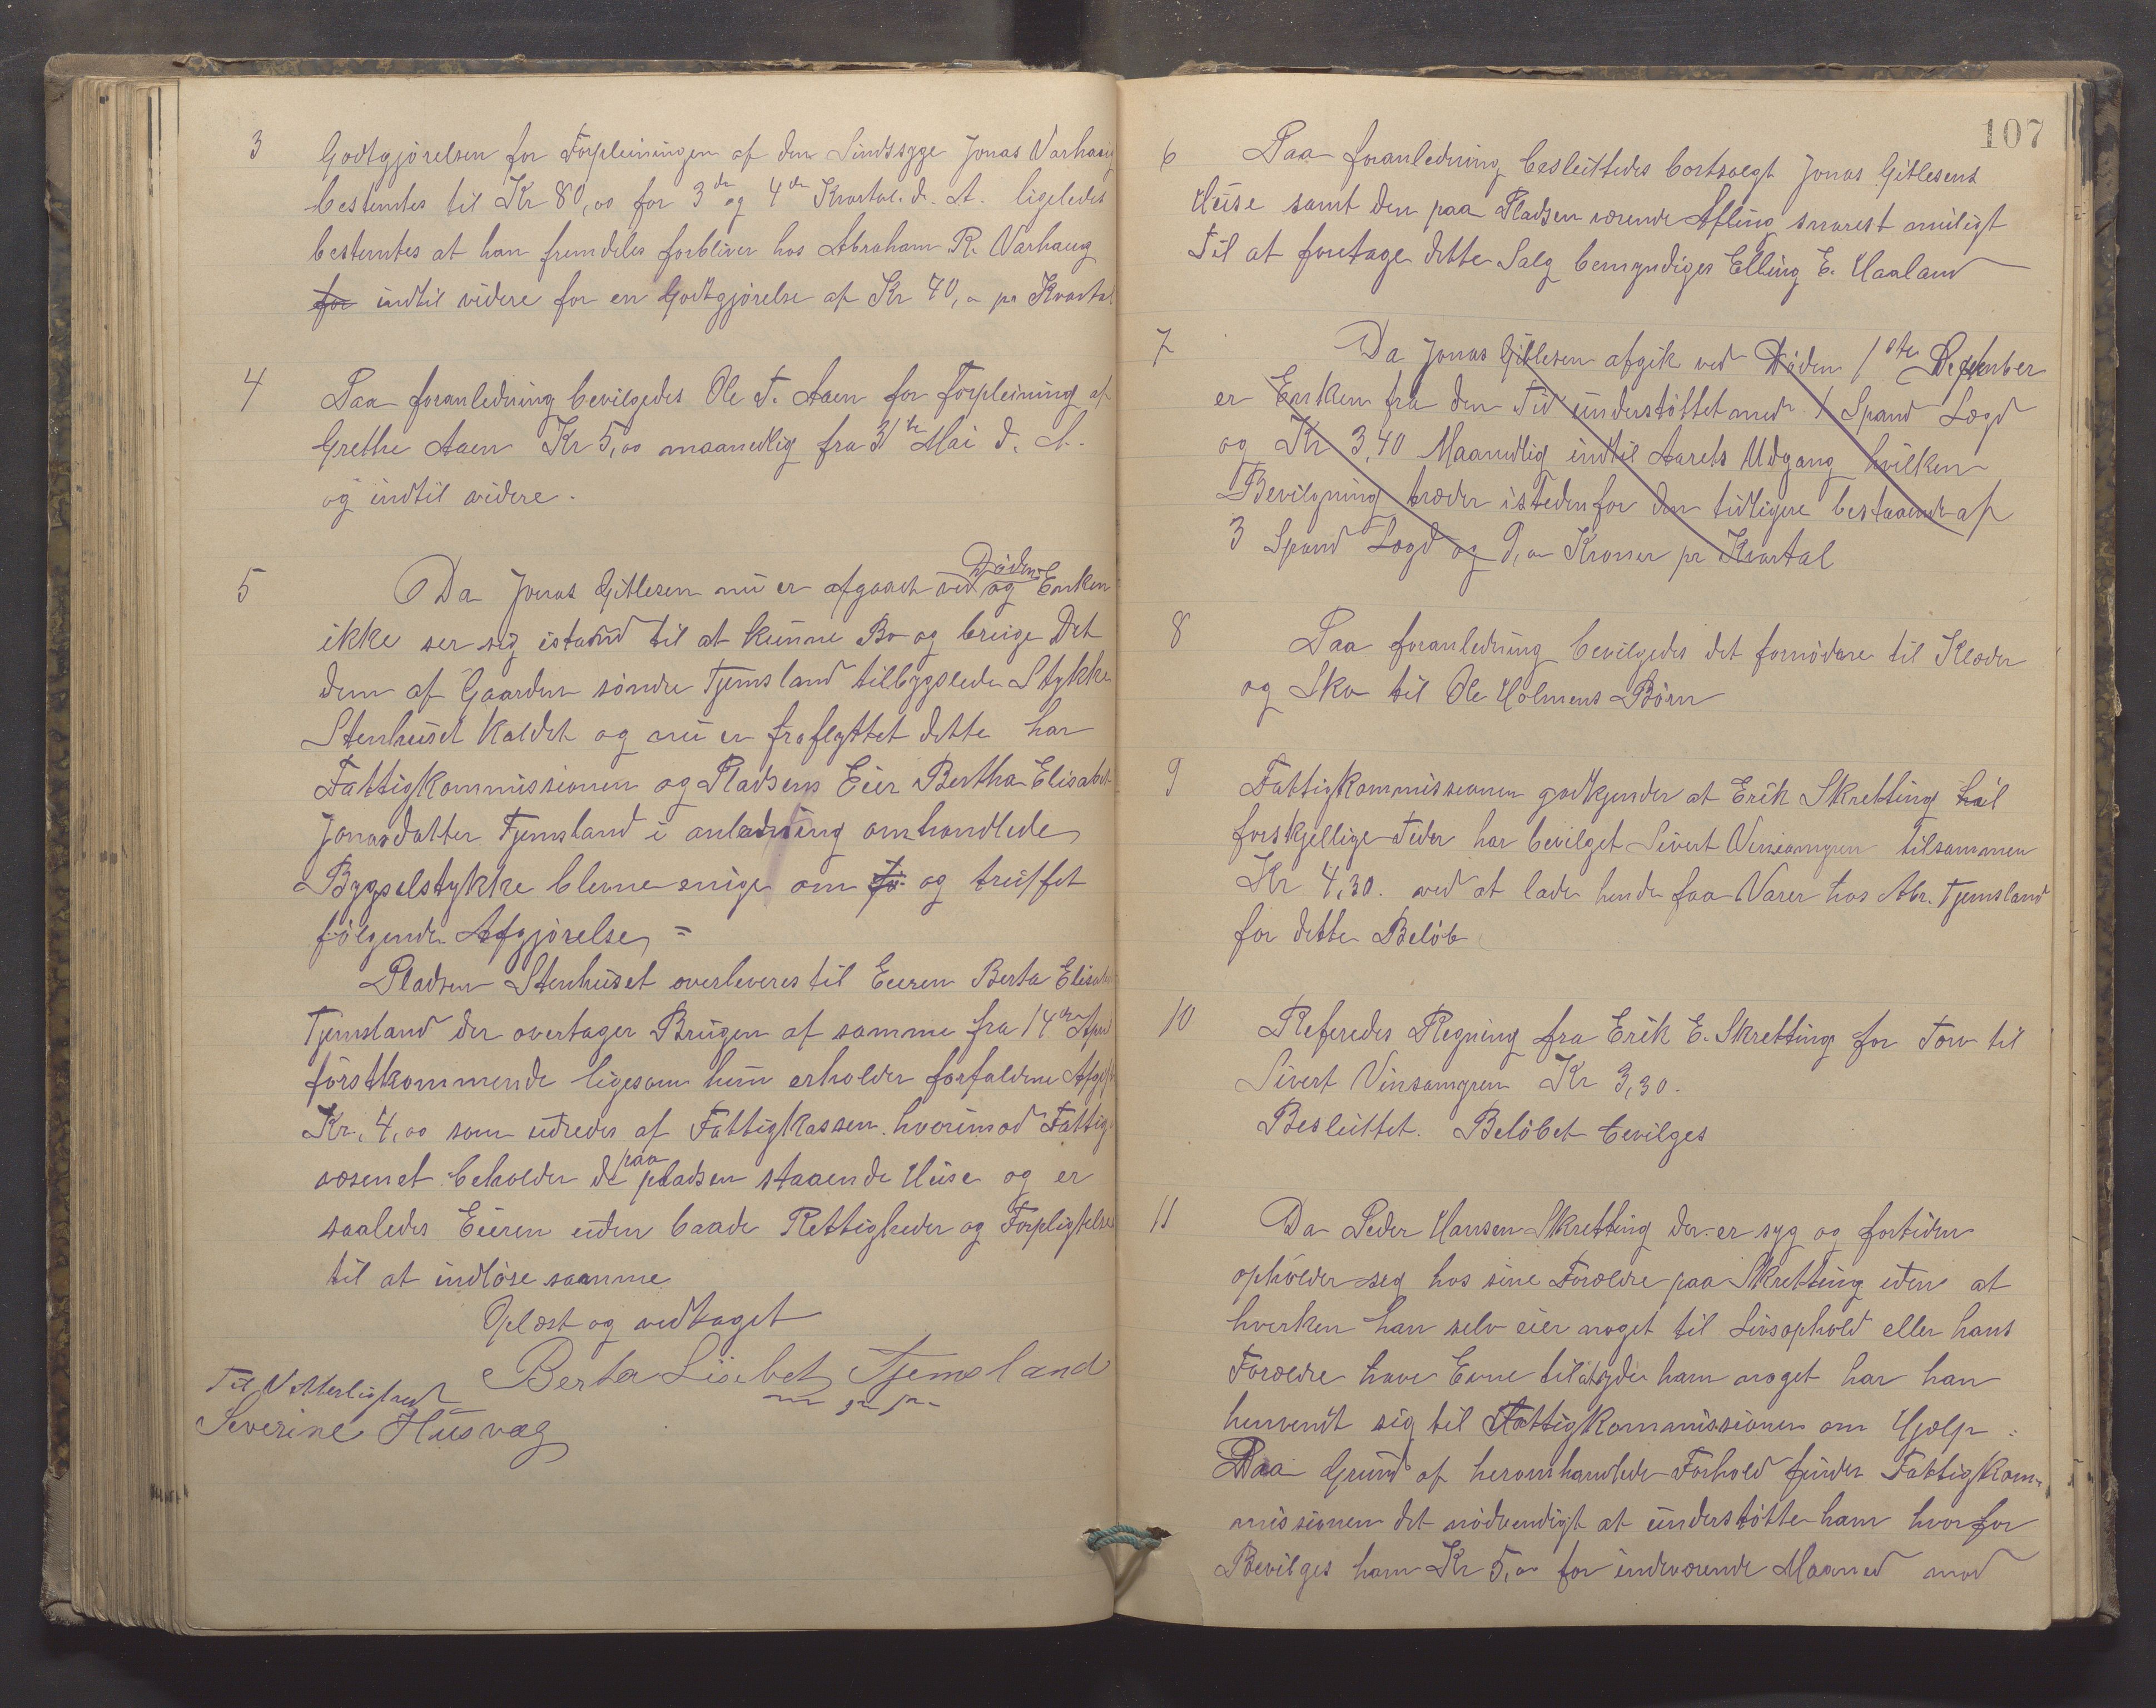 3 Godtgjörelsen for Forpleiningen af den Sindssyge Jonas Varhaug
bestemtes til Kr 80,00 for 3de og 4de Kvartal. d. A. ligeledes
bestemtes at han fremdeles forbliver hos Abraham R. Varhaug
for indtil videre for en Godtgjörelse af Kr 40,00 pr Kvartal
4 Paa foranledning bevilgedes Ole T. Aaen for Forpleining af
Grethe Aaen Kr 5,00 maanedlig fra 31te Mai d. A.
og indtil videre.
5 Da Jonas Gitlesen nu er afgaaet ved Döden og Enken
ikke ser sig istand til at kunne Bo og bruge Det
dem af Gaarden söndre Tjemsland tilbygslede Stykke
Stenhuset kaldet og nu er fraflyttet dette har
Fattigkommissionen og Pladsens Eier Bertha Elisabet
Jonasdatter Tjemsland i anledning omhandlede
Bygselstykke blevne enige om fö og truffet
fölgende Afgjörelse =
Pladsen Stenhuset overleveres til Eieren Berta Elisabet
Tjemsland der overtager Brugen af samme fra 14de April
förstkommende ligesom hun erholder forfaldene Afgift
Kr. 4,00 som udredes af Fattigkassen. hvorimod Fattig-
væsenet beholder de paa pladsen staaende Huse og er
saaledes Eieren uden baade Rettigheder og Forpligtelser
til at indlöse samme
Oplæst og vedtaget
Berta Lisebet Tjemsland
m. p. p.
Til Vitterlighed
Severine Husvæg
107
6 Paa foranledning besluttedes bortsolgt Jonas Gitlesens
Huse samt den paa Pladsen værende Afling snarest muligt
Til at foretage dette Salg bemyndiges Elling E. Haaland
7 Da Jonas Gitlesen afgik ved Döden 1ste September
er Enken fra den Tid understöttet med 1 Spand Lægd
og Kr 3,40 Maanedlig indtil Aarets Udgang hvilken
Bevilgning træder istedenfor den tidligere bestaaende af
3 Spand Lægd og 9,00 Kroner pr Kvartal
8 Paa foranledning bevilgedes det fornödne til Klæder
og Sko til Ole Holmens Börn
9 Fattigkommissionen godkjender at Erik Skretting til
forskjellige Tider har bevilget Sivert Vinsamyren tilsammen
Kr 4,30. ved at lade hende faa Varer hos Abr. Tjemsland
for dette Belöb
10 Referedes Regning fra Erik E. Skretting for Torv til
Sivert Vinsamyren Kr 3,30.
Besluttet. Belöbet bevilges
11 Da Peder Hansen Skretting der er syg og fortiden
opholder seg hos sine Forældre paa Skretting uden at
hverken han selv eier noget til Livsophold eller hans
Forældre have Evne til at yde ham noget har han
henvendt sig til Fattigkommissionen om Hjælp :
Paa Grund af heromhandlede Forhold finder Fattigkom-
missionen det nödvendigt at understötte ham hvorfor
Bevilges ham Kr 5,00 for indeværende Maaned mod